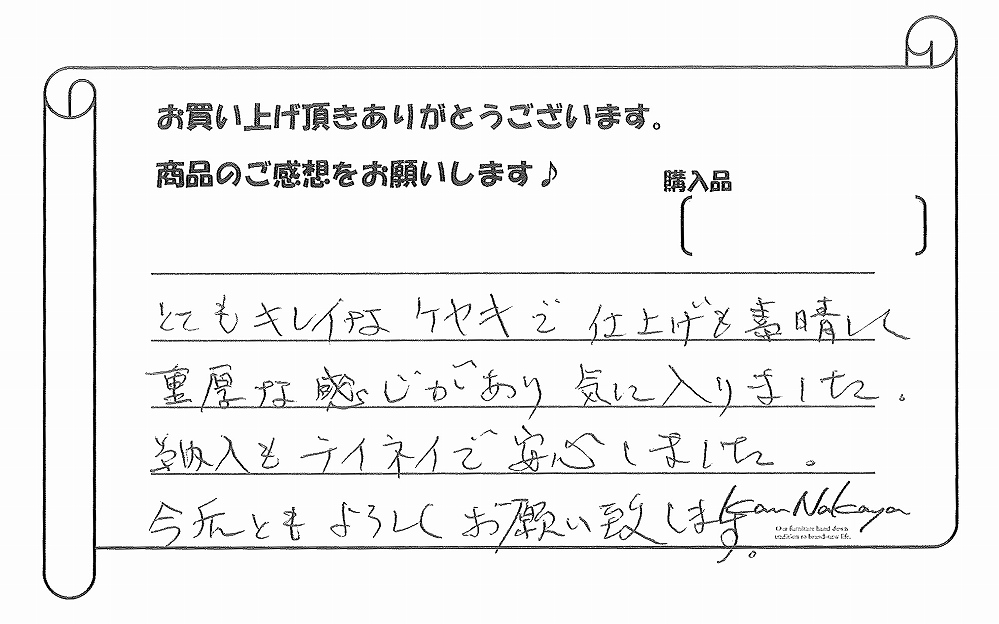 お買い上げ頂きありがとうございます。
商品のご感想をお願いします♪
購入品
とてもキレイなケヤキで仕上げも素晴しく
重厚な感じがあり気に入りました。
納入もテイネイで安心しました。
今后ともよろしくお願い致します。
Kan Nakaya
Our furniture hand down
tradition to brand-new life.